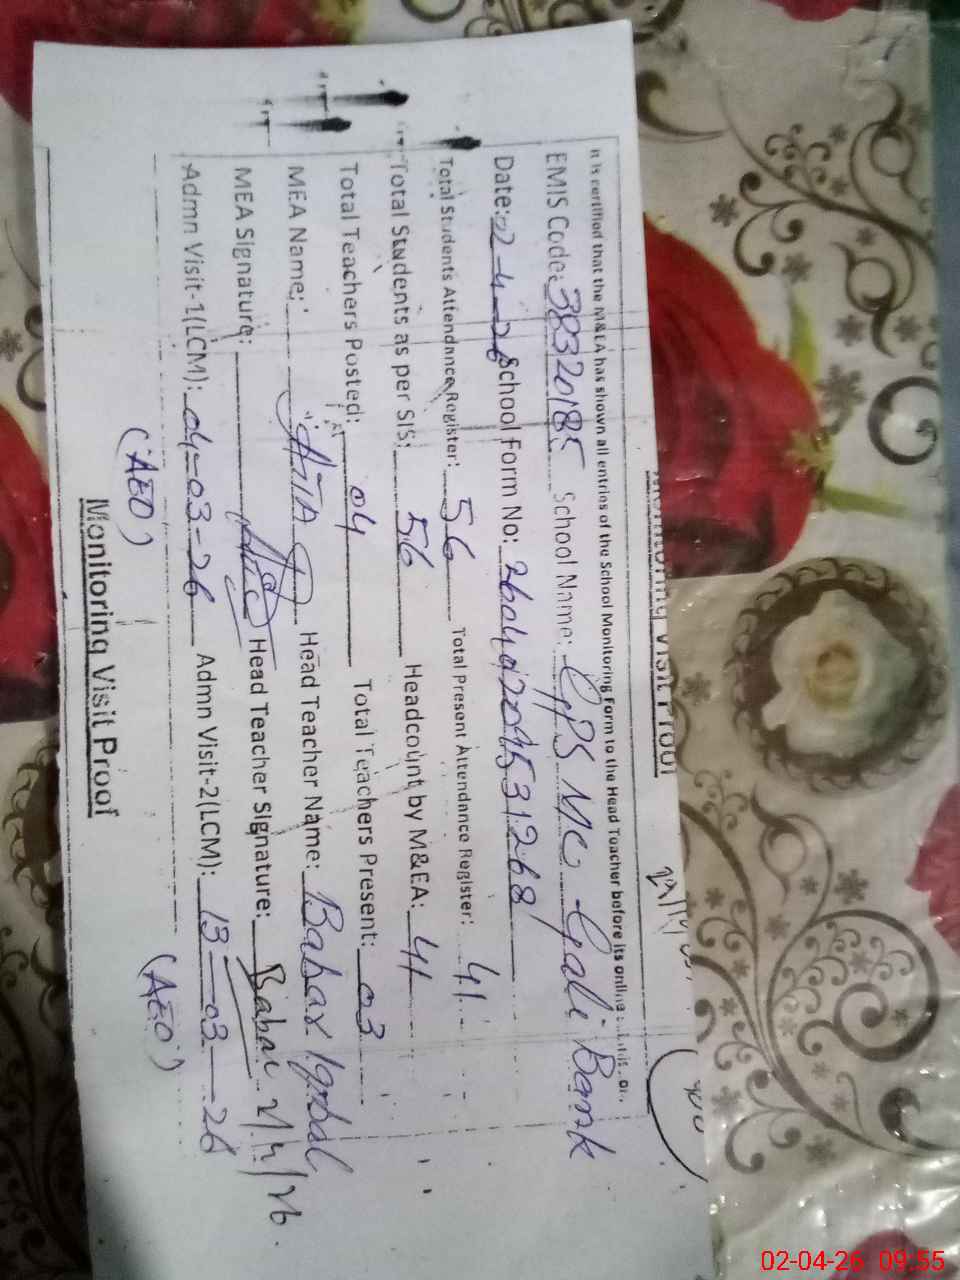 Monitoring Visit Proof
It is certified that the M&EA has shown all entries of the School Monitoring Form to the Head Teacher before its online
EMIS Code: 38320185 School Name: GPS MC Gali Bank
Date: 02-4-26 School Form No:
Total Students Attendance Register: 56 Total Present Attendance Register: 41
Total Students as per SIS: 56 Headcount by M&EA: 41
Total Teachers Posted: 04 Total Teachers Present: 03
MEA Name: Head Teacher Name: Babar Iqbal
MEA Signature: Head Teacher Signature: Babar 2/4/26
Admn Visit-1(LCM): 04-03-26 Admn Visit-2(LCM): 13-03-26
(AEO) (AEO)
Monitoring Visit Proof
02-04-26 09:55